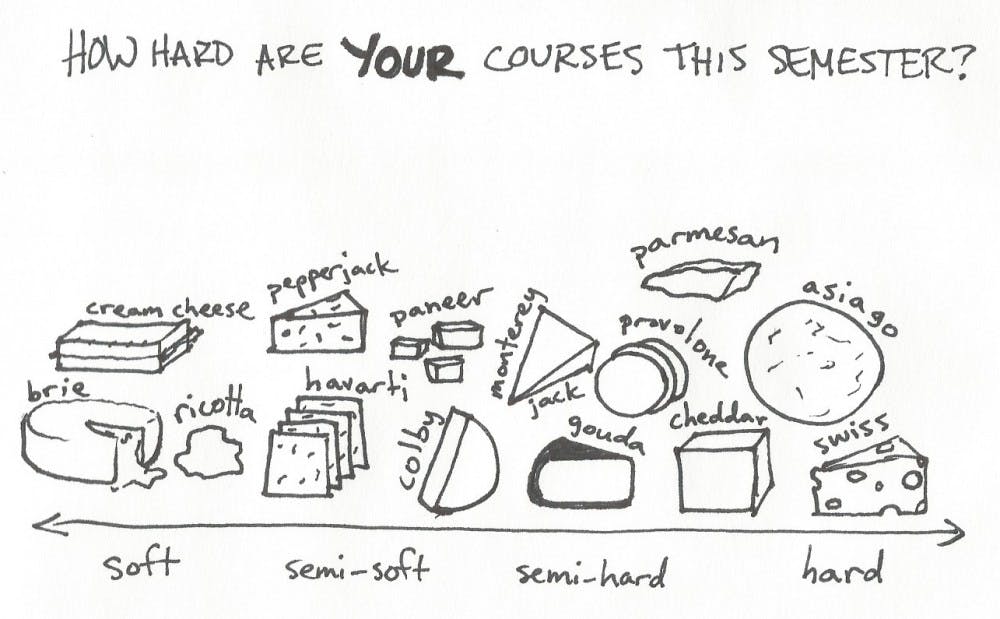 HOW HARD ARE YOUR COURSES THIS SEMESTER?
parmesan
pepperjack
asiago
cream cheese
paneer
monterey jack
provolone
brie
ricotta
havarti
colby
gouda
cheddar
swiss
soft
semi-soft
semi-hard
hard